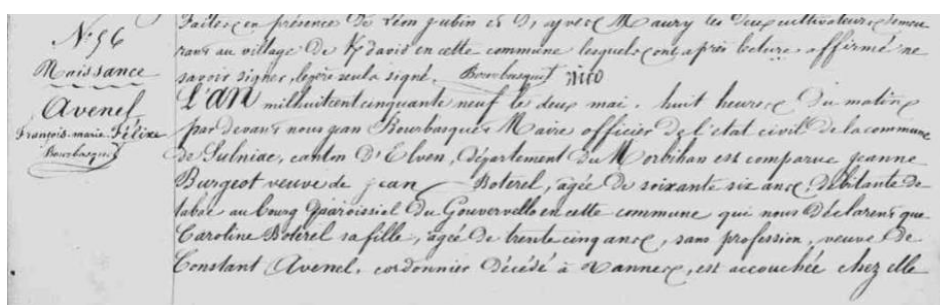 Faites en présence de Léon Jubin et d'Yves Maury les deux cultivateurs demeu
rans au village de Kdavis en cette commune lesquels ont après lecture affirmé ne
savoir signer, le père seul a signé. Bourbasquet
N.º 56
Naissance
Avenel
François-marie-Félixe
Bourbasquet
L'AN mil huit cent cinquante neuf le deux mai, huit heures du matin
par devant nous jean Bourbasquet Maire officier de l'état civil de la commune
de Sulniac, canton d'Elven, département du Morbihan est comparue jeanne
Burgeot veuve de jean Boterel, agée de soixante six ans, débitante de
tabac au bourg paroissial du Gouvervello en cette commune qui nous déclarent que
Caroline Boterel sa fille, agée de trente cinq ans, sans profession, veuve de
Constant Avenel, cordonnier décédé à Vannes, est accouchée chez elle